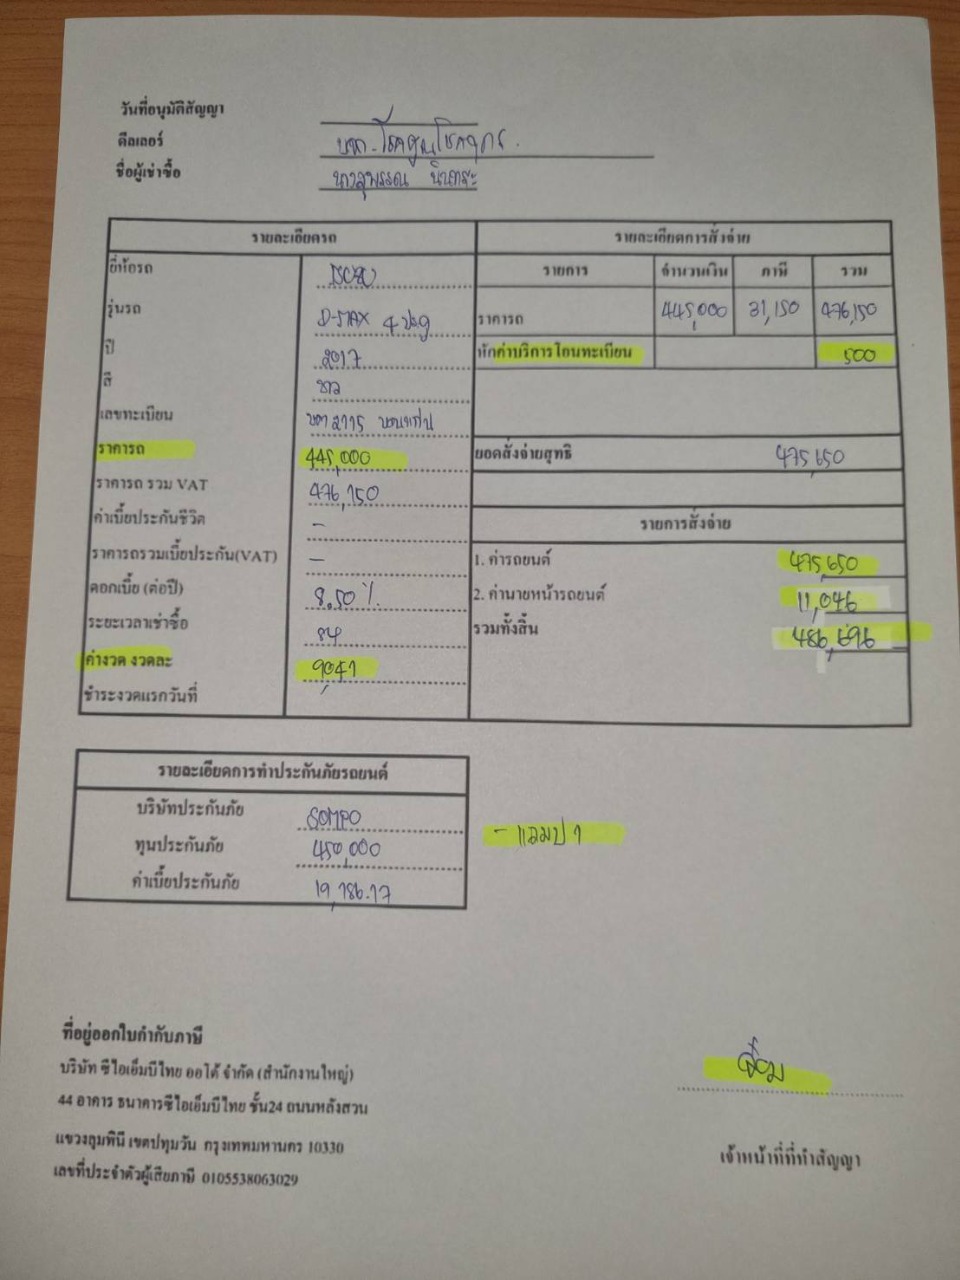 วันที่อนุมัติสัญญา
ดีลเลอร์ บจก.
ชื่อผู้เช่าซื้อ
รายละเอียดรถ
ยี่ห้อรถ ISUZU
รุ่นรถ D-MAX 4 ประตู
ปี 2017
สี ขาว
เลขทะเบียน ขอนแก่น
ราคารถ 445,000
ราคารถ รวม VAT 476,150
ค่าเบี้ยประกันชีวิต -
ราคารถรวมเบี้ยประกัน(VAT) -
ดอกเบี้ย (ต่อปี) 8.50 %
ระยะเวลาเช่าซื้อ 84
ค่างวด งวดละ 9,047
ชำระงวดแรกวันที่
รายละเอียดการสั่งจ่าย
รายการ จำนวนเงิน ภาษี รวม
ราคารถ 445,000 31,150 476,150
หักค่าบริการโอนทะเบียน 500
ยอดสั่งจ่ายสุทธิ 475,650
รายการสั่งจ่าย
1. ค่ารถยนต์ 475,650
2. ค่านายหน้ารถยนต์ 11,046
รวมทั้งสิ้น 486,696
รายละเอียดการทำประกันภัยรถยนต์
บริษัทประกันภัย SOMPO
ทุนประกันภัย 450,000
ค่าเบี้ยประกันภัย 19,786.17
- แถมป 1
ที่อยู่ออกใบกำกับภาษี
บริษัท ซีไอเอ็มบีไทย ออโต้ จำกัด (สำนักงานใหญ่)
44 อาคาร ธนาคารซีไอเอ็มบีไทย ชั้น24 ถนนหลังสวน
แขวงลุมพินี เขตปทุมวัน กรุงเทพมหานคร 10330
เลขที่ประจำตัวผู้เสียภาษี 0105538063029
เจ้าหน้าที่ที่ทำสัญญา